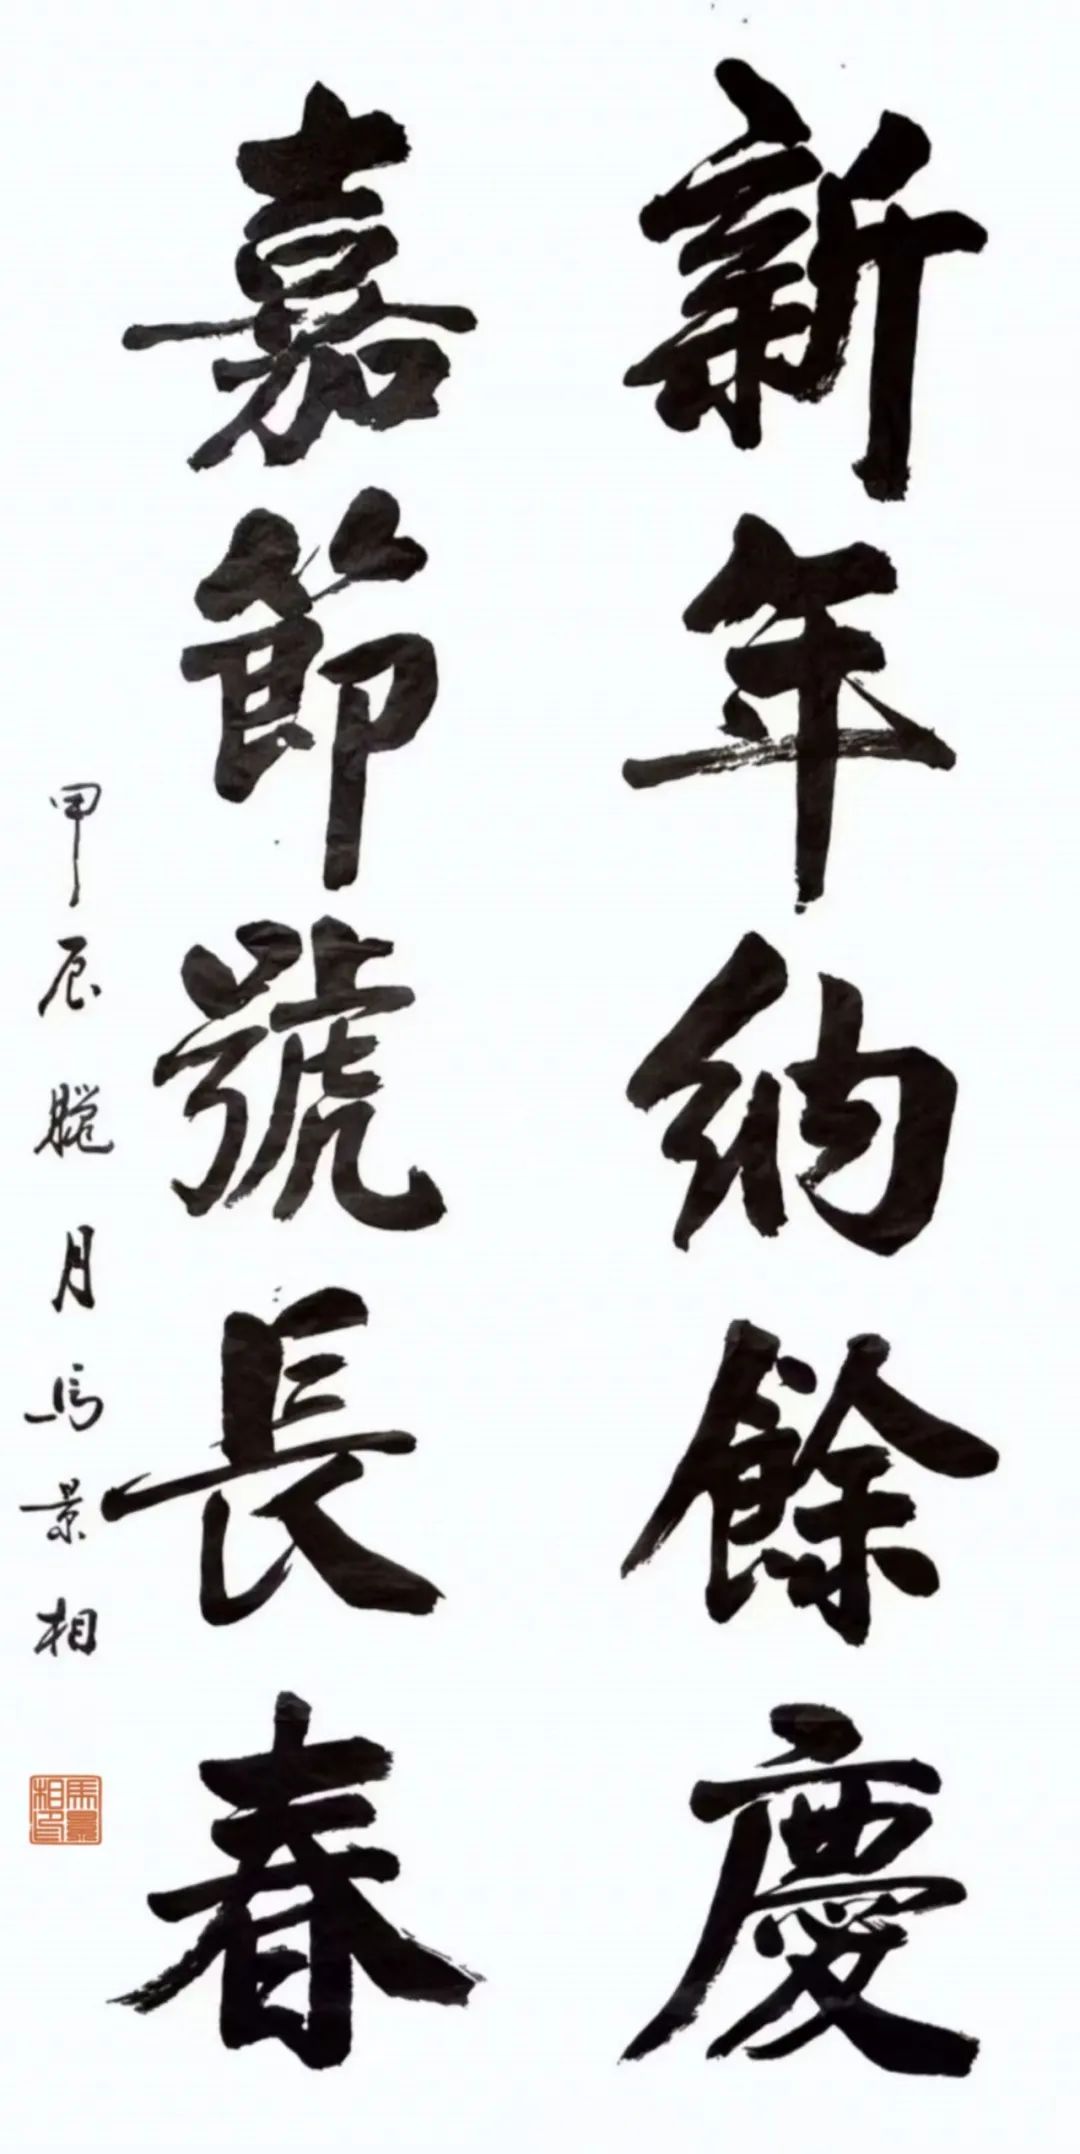 新年納餘慶
嘉節號長春
甲辰臘月馬景相
馬景相印